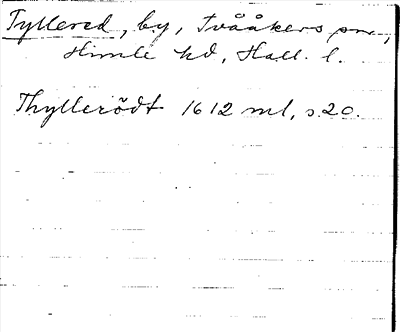 Tyllered, by, Tvååkers sn,
Himle hd, Hall. l.
Thyllerödt 1612 ml, s. 20.